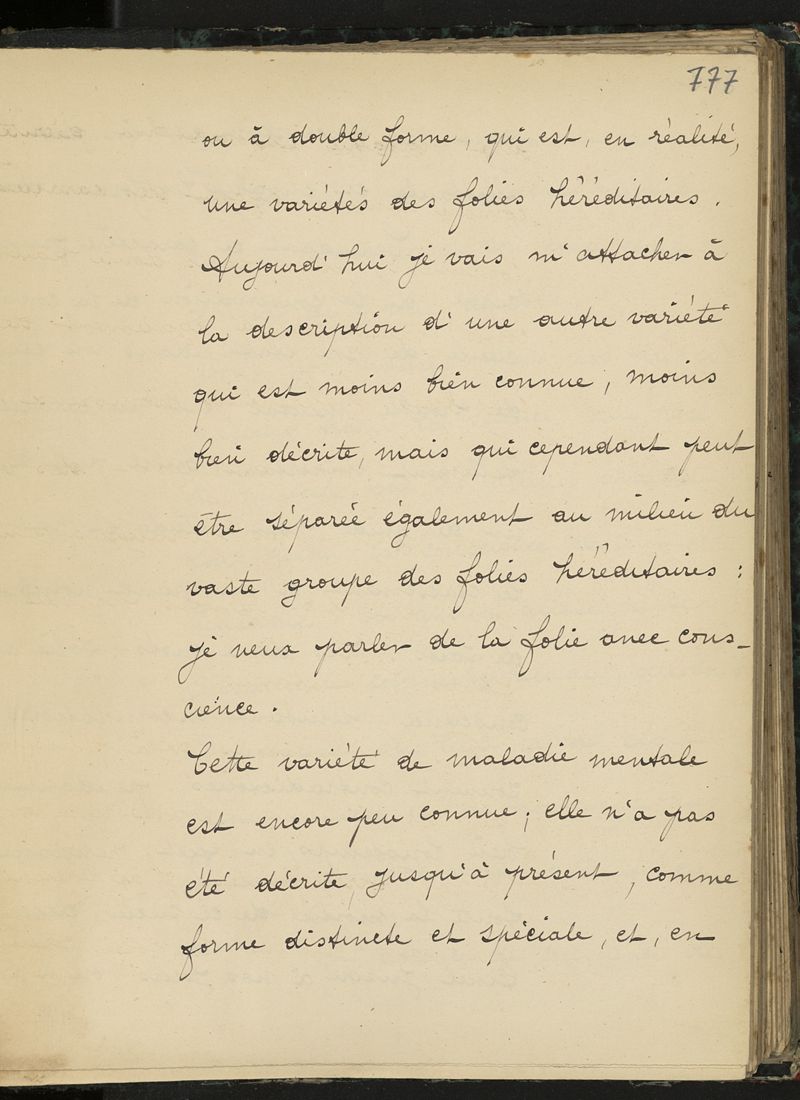 777
ou à double forme, qui est, en réalité,
une variétés des folies héréditaires.
Aujourd'hui je vais m'attacher à
la description d'une autre variété
qui est moins bien connue, moins
bien décrite, mais qui cependant peut
être séparée également au milieu du
vaste groupe des folies héréditaires :
je veux parler de la folie avec cons-
cience.
Cette variété de maladie mentale
est encore peu connue ; elle n'a pas
été décrite, jusqu'à présent, comme
forme distincte et spéciale, et, en